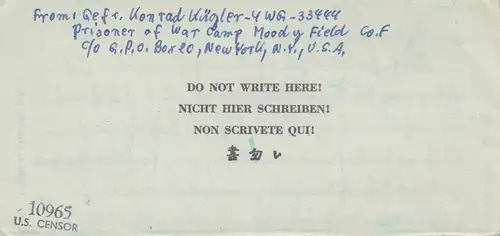 From: Gefr. Konrad Kügler-4WG-33444
Prisoner of War Camp Moody Field Co.F
c/o G.P.O. Box 20, New York, N.Y., U.S.A.
DO NOT WRITE HERE!
NICHT HIER SCHREIBEN!
NON SCRIVETE QUI!
書勿レ
10965
U.S. CENSOR